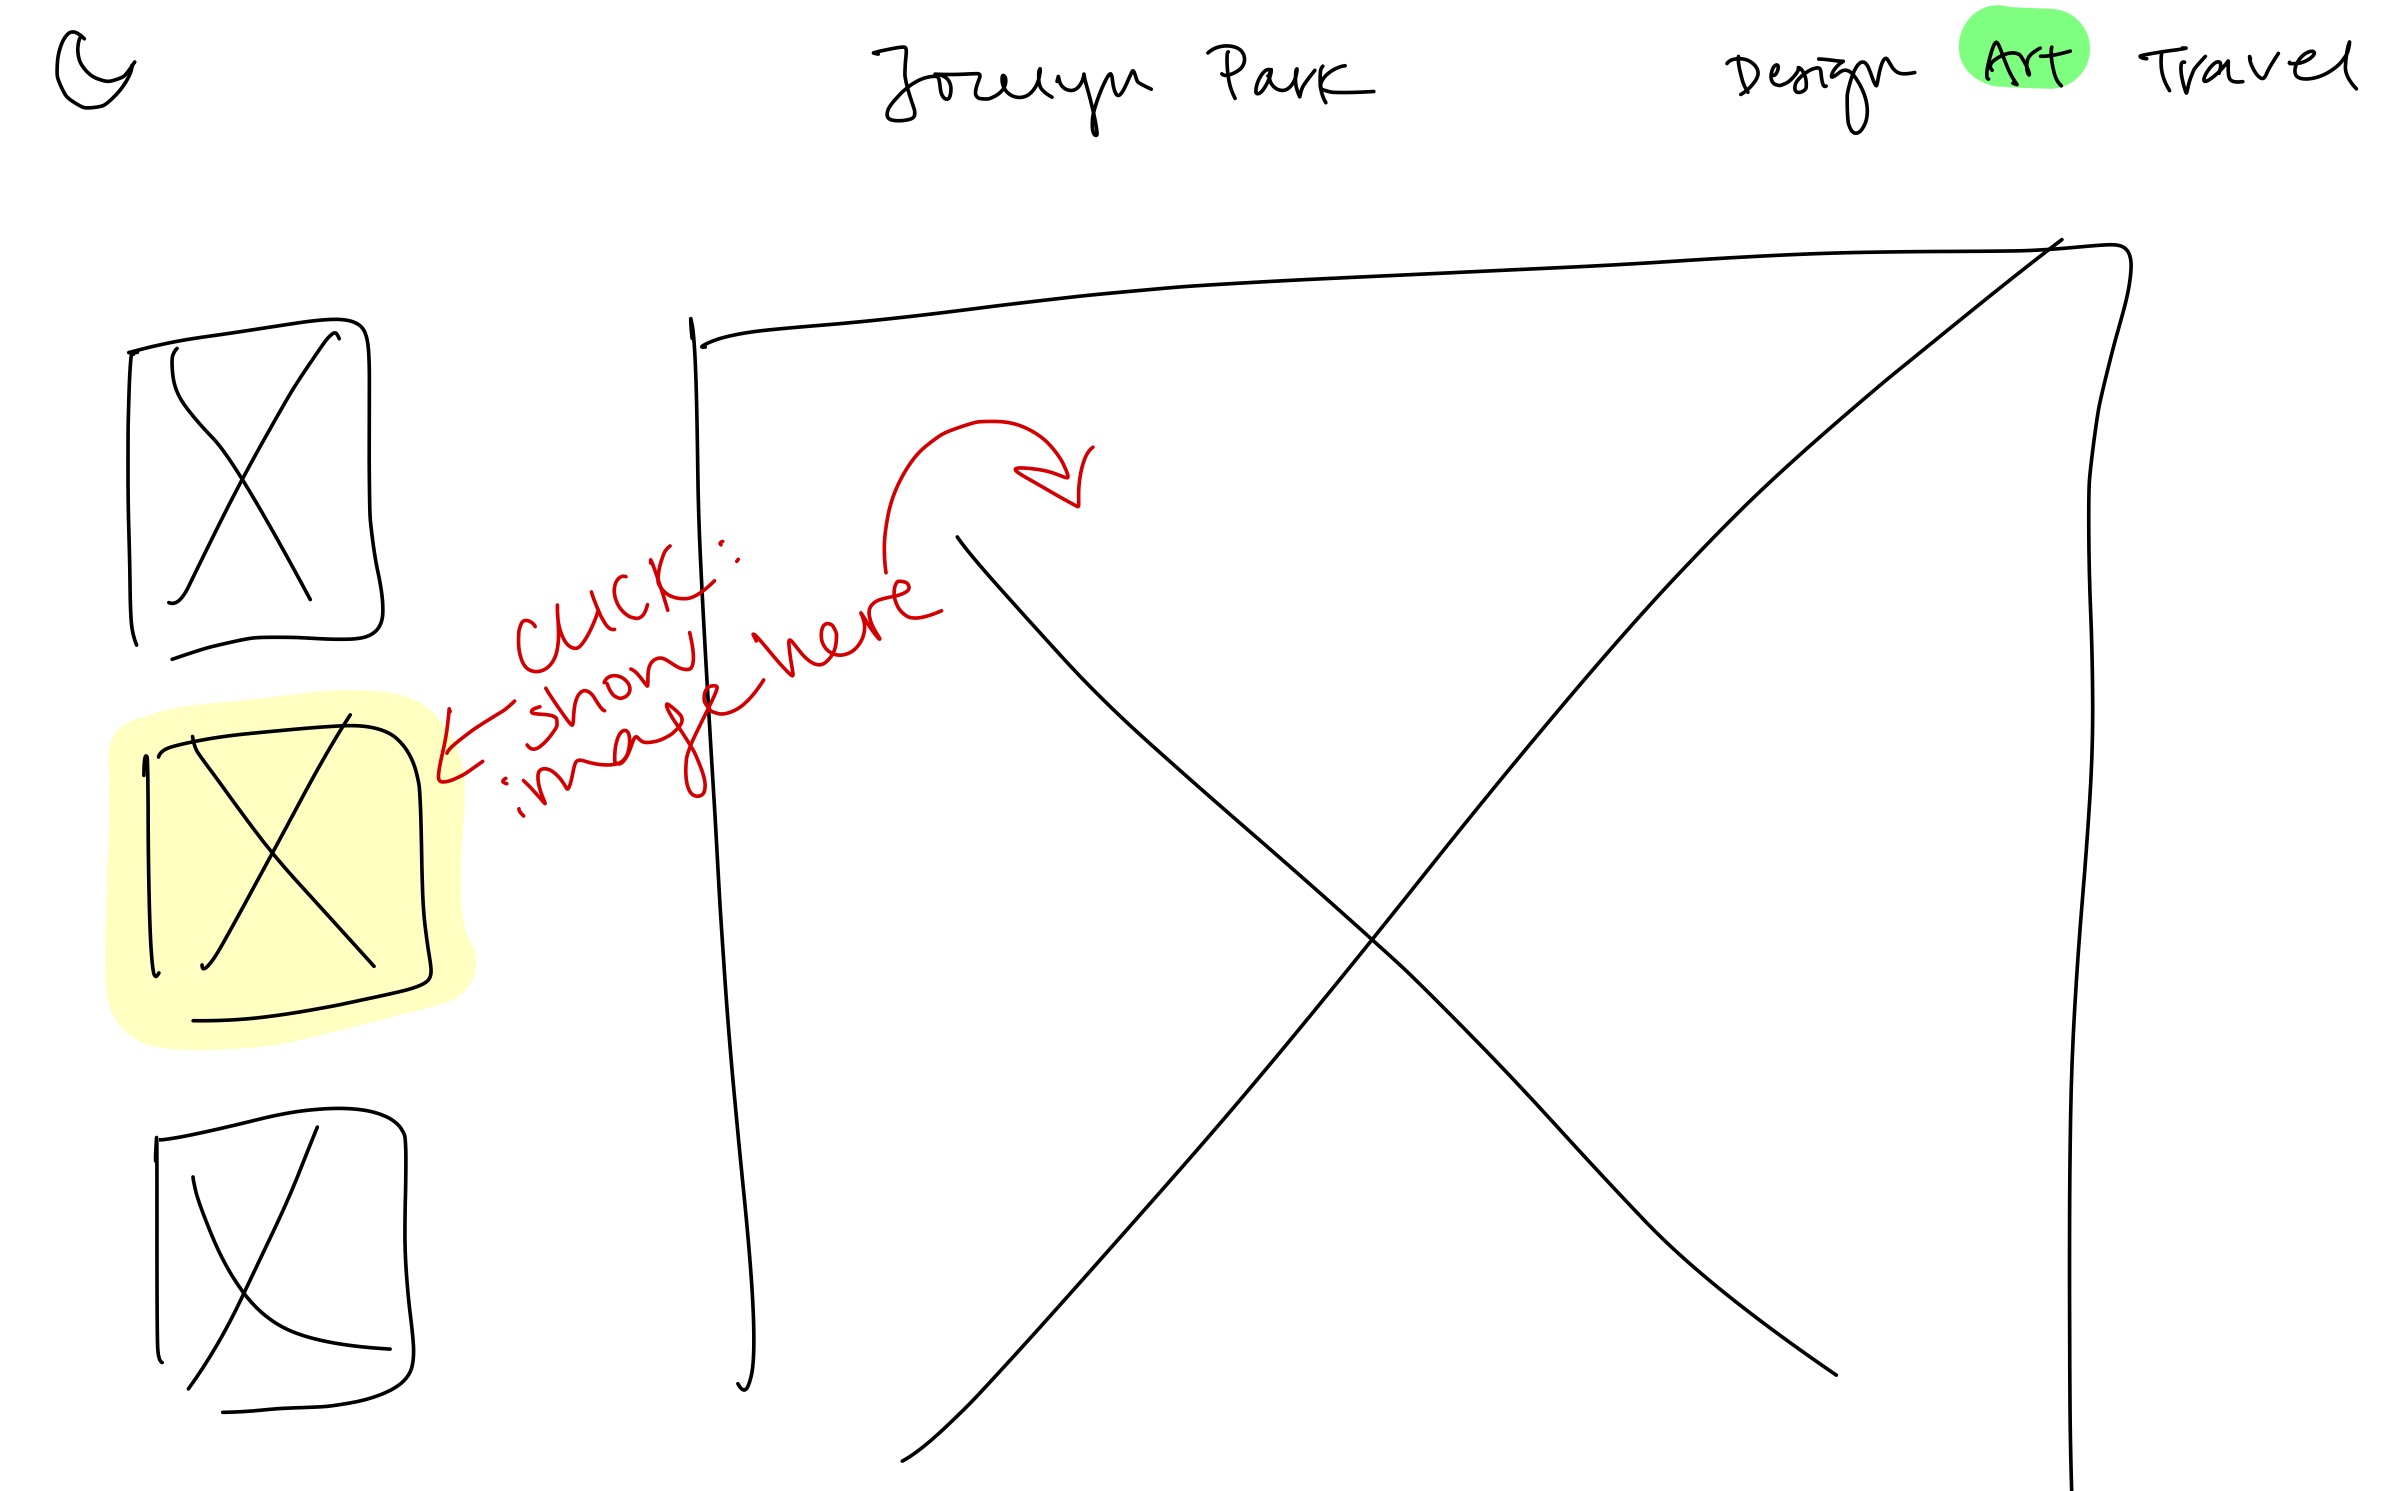 C
Park
Design Art Travel
click:
show
image here